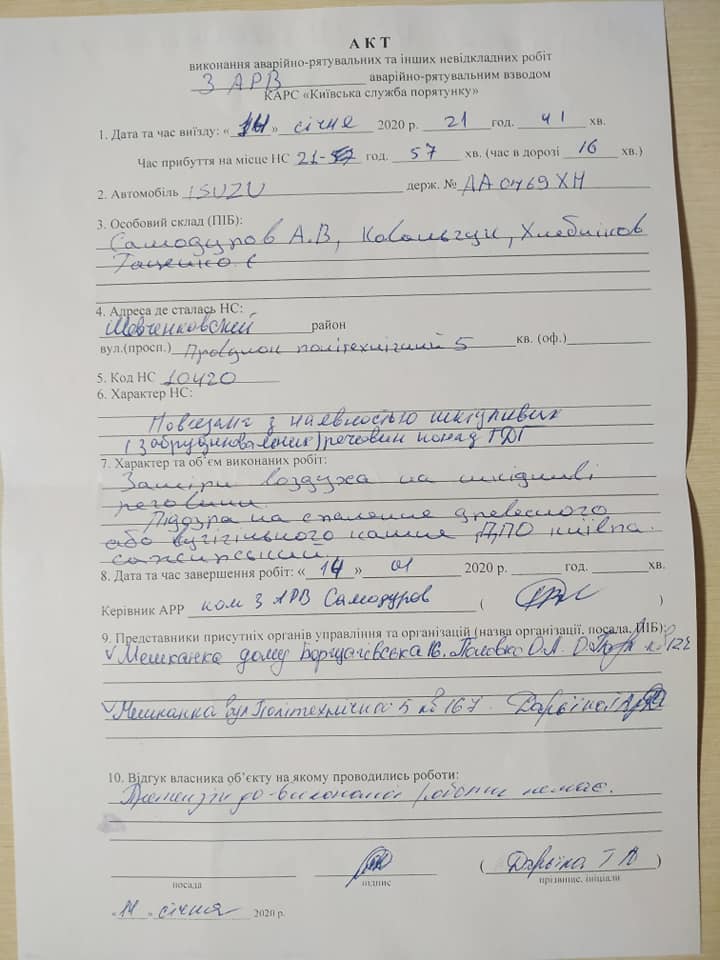 А К Т
виконання аварійно-рятувальних та інших невідкладних робіт
3 АРВ аварійно-рятувальним взводом
КАРС «Київська служба порятунку»
1. Дата та час виїзду: «14» січня 2020 р. 21 год. 41 хв.
Час прибуття на місце НС 21-57 год. 57 хв. (час в дорозі 16 хв.)
2. Автомобіль ISUZU держ. № АА0469ХН
3. Особовий склад (ПІБ):
Самодуров А.В, Ковальчук, Хлебніков
4. Адреса де сталась НС:
Шевченковский район
вул.(просп.) політехнічний 5 кв. (оф.)
5. Код НС 10420
6. Характер НС:
з наявностью шкідливих
речовин понад ГДК
7. Характер та об’єм виконаних робіт:
Заміри воздуха на шкідливі
реговини.
Підозра на спалення древесного
або вугігільного
8. Дата та час завершення робіт: «14» 01 2020 р. год. хв.
Керівник АРР ком 3 АРВ Самодуров ( )
9. Представники присутніх органів управління та організацій (назва організації, посада, ПІБ):
Мешканка дому Борщагівська 16. О.Л.
Мешканка вул Політехнічної 5 кв 167.
10. Відгук власника об’єкту на якому проводились роботи:
Претензій до виконаної роботи немає.
посада підпис прізвище, ініціали
«14» січня 2020 р.